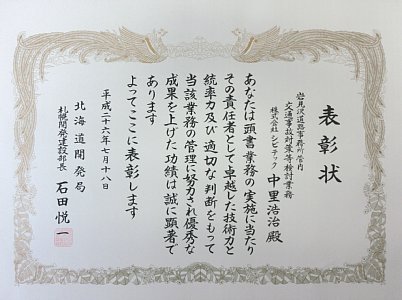 表彰状
岩見沢道路事務所管内
交通事故対策等検討業務
株式会社 シビテック
中里浩治殿
あなたは頭書業務の実施に当たり
その責任者として卓越した技術力と
統率力及び適切な判断をもって
当該業務の管理に努力され優秀な
成果を上げた功績は誠に顕著で
あります
よってここに表彰します
平成二十六年七月十八日
北海道開発局
札幌開発建設部長 石田悦一